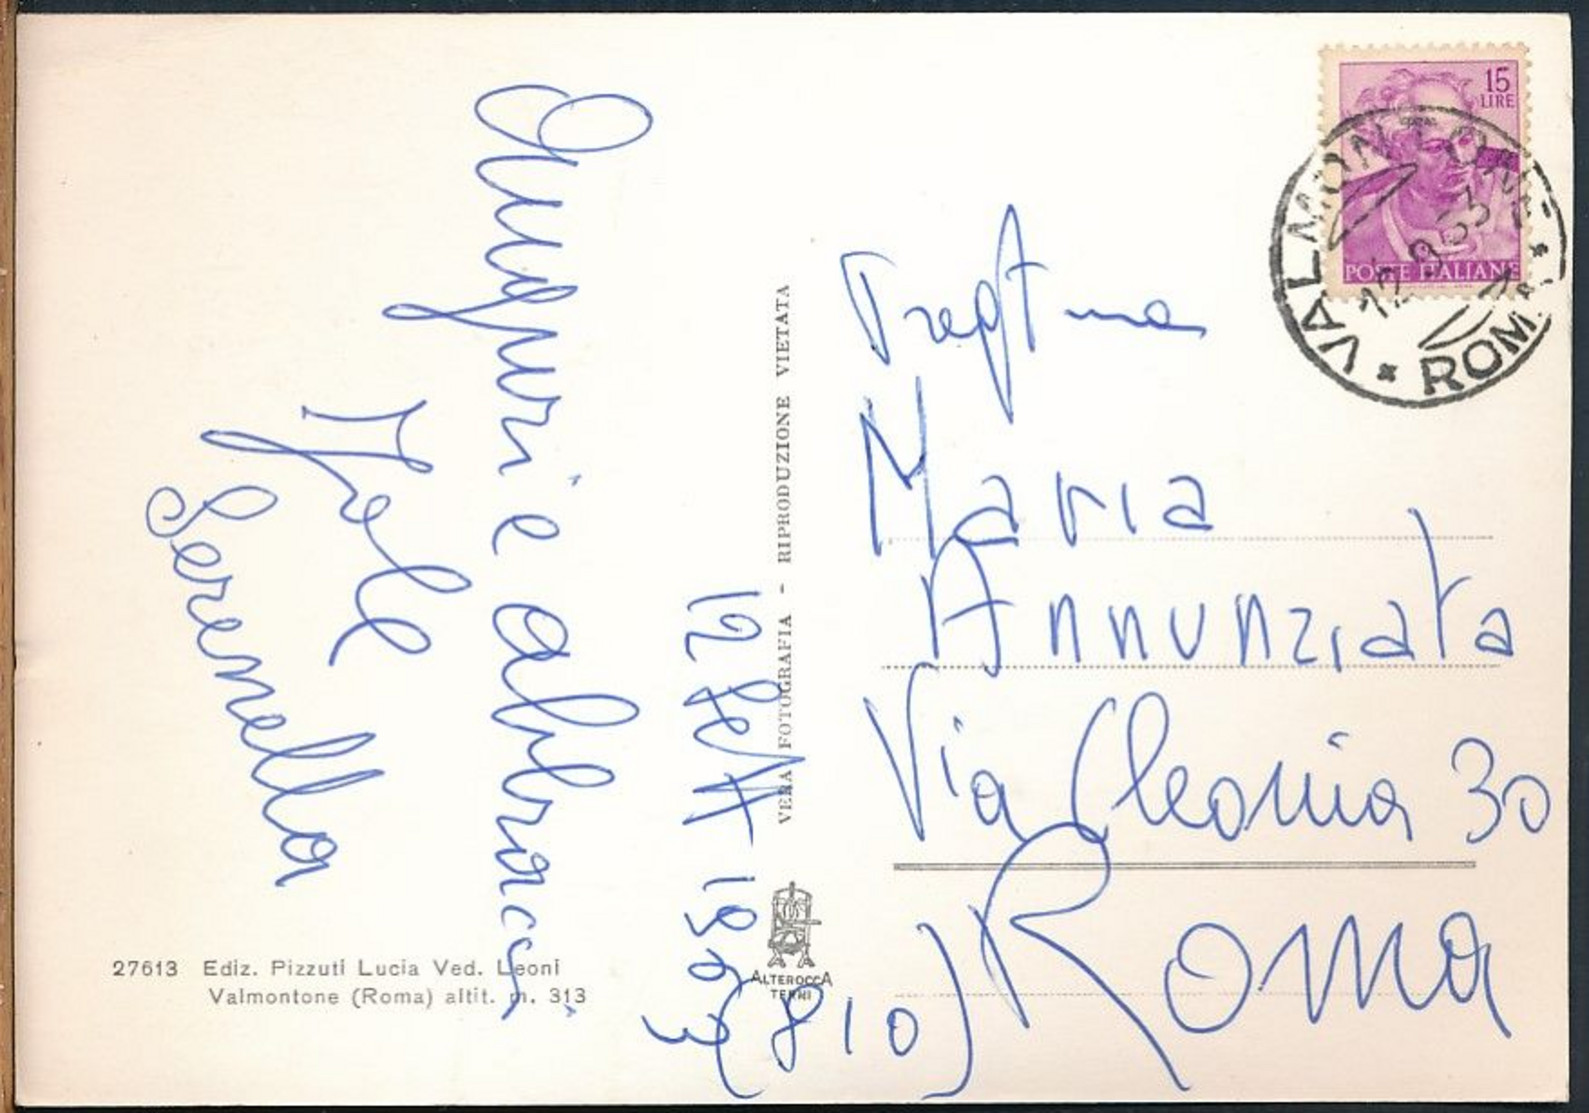 Auguri e abbracci
Jole
Serenella
12 Sett 1963
27613 Ediz. Pizzuti Lucia Ved. Leoni
Valmontone (Roma) altit. m. 313
VERA FOTOGRAFIA - RIPRODUZIONE VIETATA
ALTEROCCA
TERNI
15
LIRE
POSTE ITALIANE
VALMONTONE
12.9.63
ROMA
Maria
Annunziata
Via Cleonia 30
(810) Roma